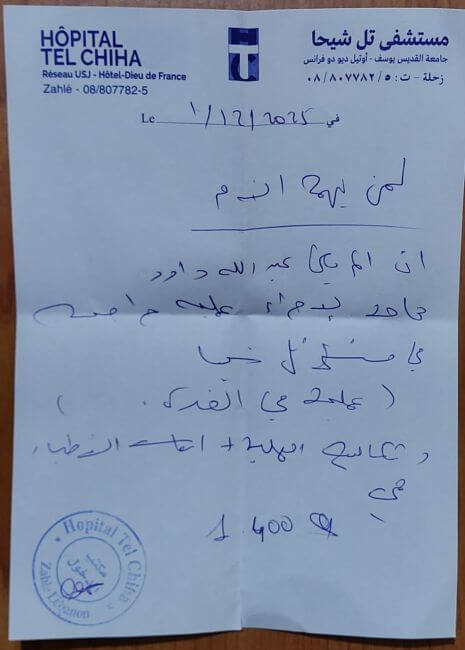 HÔPITAL
TEL CHIHA
Réseau USJ - Hôtel-Dieu de France
Zahlé - 08/807782-5
مستشفى تل شيحا
جامعة القديس يوسف - أوتيل ديو دو فرانس
زحلة - ت: ٠٨/٨٠٧٧٨٢/٥
Le 1/12/2025 في
لمن يهمه الامر
ان المريض عبد الله داود
بحاجة لإجراء عملية جراحية
في مستشفى تل شيحا
( عملية في الغدة )
وتكاليف العملية + اتعاب الأطباء
هي
1.400 $
Hopital Tel Chiha
مكتب
الدخول
Zahle Lebanon